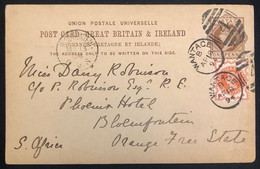 UNION POSTALE UNIVERSELLE
POST CARD-GREAT BRITAIN & IRELAND
(GRANDE-BRETAGNE ET IRLANDE)
THE ADDRESS ONLY TO BE WRITTEN ON THIS SIDE.
WANTAGE
Miss Daisy Robinson
C/o P. Robinson Esq. R.E.
Phoenix Hotel
Bloemfontein
S. Africa Orange Free State